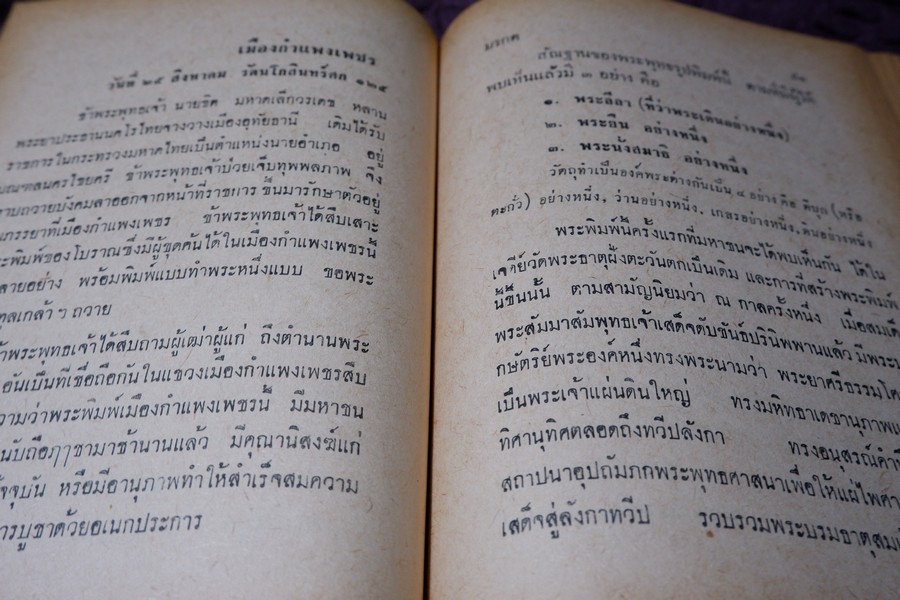 เมืองกำแพงเพชร
วันที่ ๒๕ สิงหาคม รัตนโกสินทร์ศก ๑๒๕
ข้าพระพุทธเจ้า นายชิต มหาดเล็กวรเดช หลาน
พระยาประธานนคโรไทยจางวางเมืองอุทัยธานี เดิมได้รับ
ราชการในกระทรวงมหาดไทยเป็นตำแหน่งนายอำเภอ อยู่
มณฑลนครไชยศรี ข้าพระพุทธเจ้าป่วยเจ็บทุพพลภาพ จึง
ราบถวายบังคมลาออกจากหน้าที่ราชการ ขึ้นมารักษาตัวอยู่
ภรรยาที่เมืองกำแพงเพชร ข้าพระพุทธเจ้าได้สืบเสาะ
ะพิมพ์ของโบราณซึ่งมีผู้ขุดค้นได้ในเมืองกำแพงเพชรนี้
ลายอย่าง พร้อมพิมพ์แบบทำพระหนึ่งแบบ ขอพระ
ทูลเกล้า ฯ ถวาย
้าพระพุทธเจ้าได้สืบถามผู้เฒ่าผู้แก่ ถึงตำนานพระ
อันเป็นที่เชื่อถือกันในแขวงเมืองกำแพงเพชรสืบ
วามว่าพระพิมพ์เมืองกำแพงเพชรนี้ มีมหาชน
นับถือฦๅชามาช้านานแล้ว มีคุณานิสงฆ์แก่
ัจจุบัน หรือมีอานุภาพทำให้สำเร็จสมความ
ารบูชาด้วยอเนกประการ
มรกต
สัณฐานของพระพุทธรูปพิมพ์นี้
พบเห็นแล้วมี ๓ อย่าง คือ
๑. พระลีลา (ที่ว่าพระเดินอย่างหนึ่ง)
๒. พระยืน อย่างหนึ่ง
๓. พระนั่งสมาธิ อย่างหนึ่ง
วัตถุทำเป็นองค์พระต่างกันเป็น ๔ อย่าง คือ ดีบุก (หรือ
ตะกั่ว) อย่างหนึ่ง, ว่านอย่างหนึ่ง, เกสรอย่างหนึ่ง, ดินอย่างหนึ่ง
พระพิมพ์นี้ครั้งแรกที่มหาชนจะได้พบเห็นกัน ได้ใน
เจดีย์วัดพระธาตุฝั่งตะวันตกเป็นเดิม และการที่สร้างพระพิมพ์
นี้ขึ้นนั้น ตามสามัญนิยมว่า ณ กาลครั้งหนึ่ง เมื่อสมเด็
พระสัมมาสัมพุทธเจ้าเสด็จดับขันธ์ปรินิพพานแล้ว มีพระบ
กษัตริย์พระองค์หนึ่งทรงพระนามว่า พระยาศรีธรรมโศ
เป็นพระเจ้าแผ่นดินใหญ่ ทรงมหิทธาเดชานุภาพแ
ทิศานุทิศตลอดถึงทวีปลังกา ทรงอนุสรณ์คำนึ
สถาปนาอุปถัมภกพระพุทธศาสนาเพื่อให้แผ่ไพศา
เสด็จสู่ลังกาทวีป รวบรวมพระบรมธาตุสม